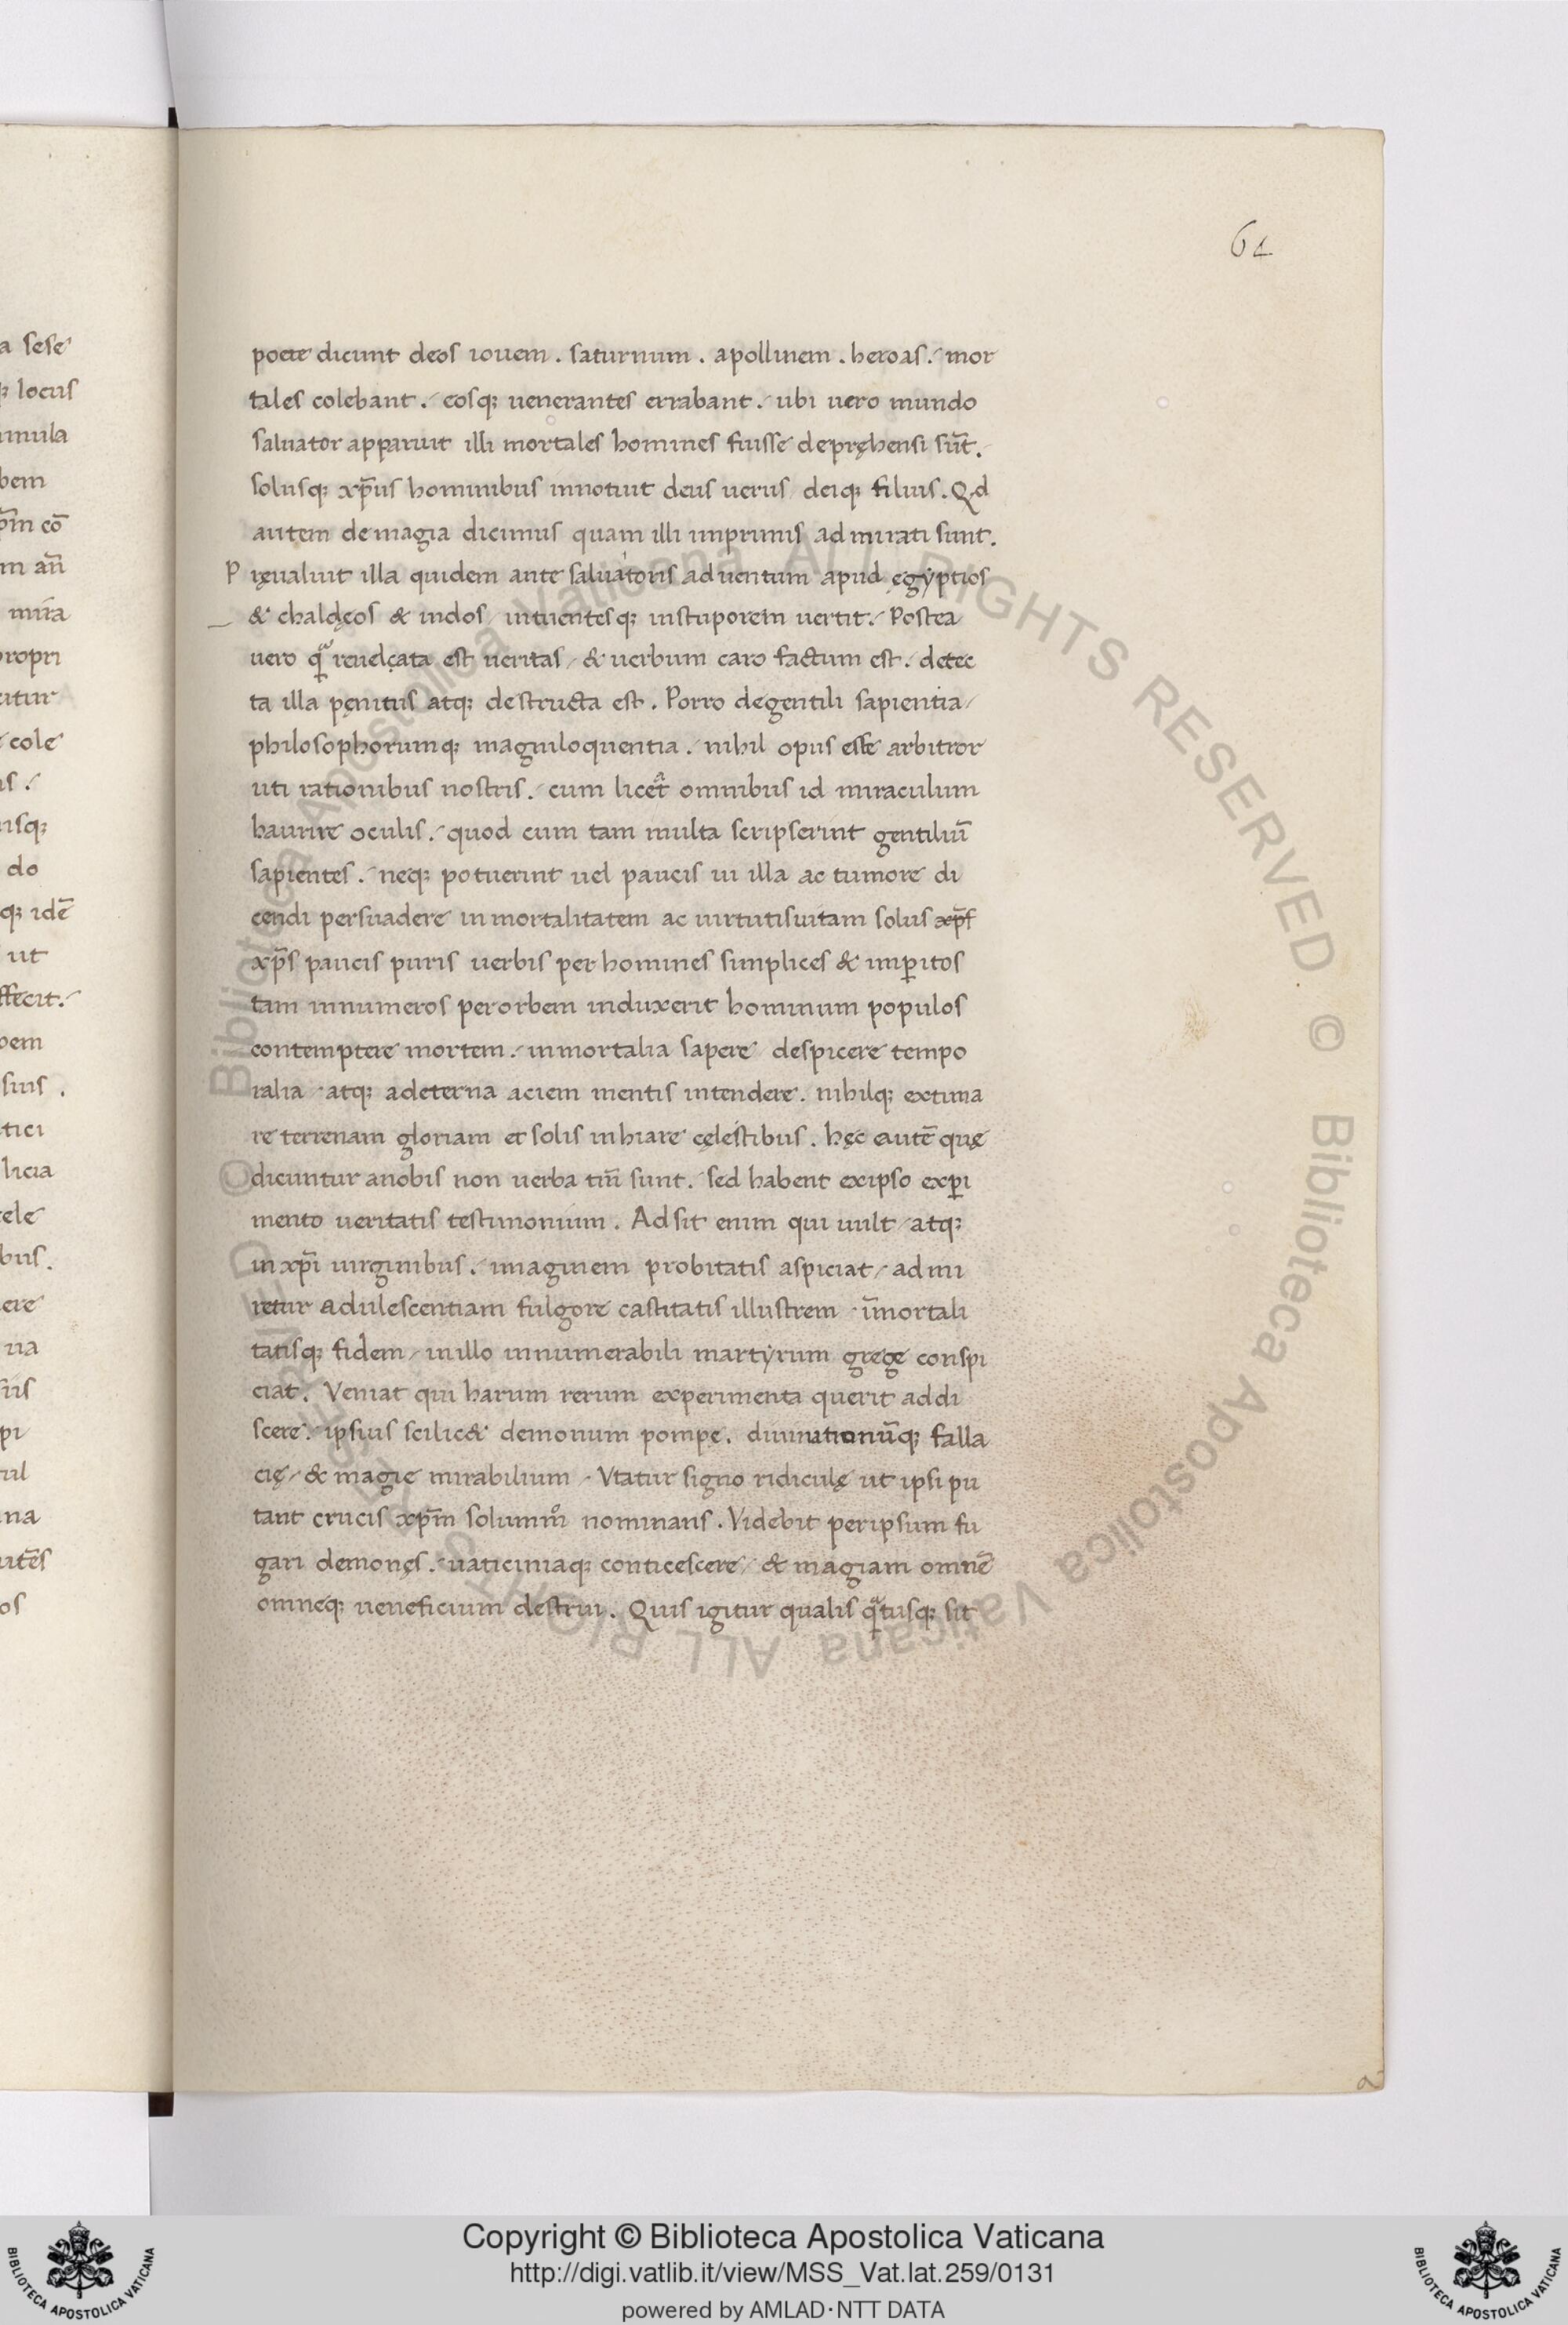 a sese
q; locus
imula
bem
p̄m cō
m añ
mira
propri
citur
cole
is.
uisq;
do
q; idē
ut
ffecit.
bem
suis.
tici
licia
cele
bus.
ere
ua
suis
pi
cul
na
utēs
os
64
poete dicunt deos iouem. saturnum. apollinem. heroas. mor
tales colebant. eosq; uenerantes errabant. ubi uero mundo
saluator apparuit illi mortales homines fuisse depręhensi sūt.
solusq; xp̄us hominibus innotuit deus uerus deiq; filius. Qd
autem de magia dicimus quam illi imprimis admirati sunt.
P ręualuit illa quidem ante saluatoris aduentum apud ęgẏptios
& chaldęos & indos intuentesq; instuporem uertit. Postea
uero ꝗ̃ reuelęata est ueritas & uerbum caro factum est. detec
ta illa pęnitus atq; destructa est. Porro degentili sapientia
philosophorumq; magniloquentia. nihil opus esse arbitror
uti rationibus nostris. cum licet omnibus id miraculum
haurire oculis. quod cum tam multa scripserint gentiliū
sapientes. neq; potuerint uel paucis ui illa ac tumore di
cendi persuadere inmortalitatem ac uirtutisuitam solus xp̄s
xp̄s paucis puris uerbis per homines simplices & imꝑitos
tam innumeros perorbem induxerit hominum populos
contemptere mortem. inmortalia sapere despicere tempo
ralia atq; adeterna aciem mentis intendere. nihilq; extima
re terrenam gloriam et solis inhiare cęlestibus. hęc autē quę
dicuntur anobis non uerba tm̄ sunt. sed habent exipso exꝑi
mento ueritatis testimonium. Adsit enim qui uult atq;
in xp̄i uirginibus. imaginem probitatis aspiciat admi
retur adulescentiam fulgore castitatis illustrem īmortali
tatisq; fidem inillo innumerabili martẏrum grege conspi
ciat. Veniat qui harum rerum experimenta querit addi
scere. ipsius scilic& demonum pompę. diuinationūq; falla
cię & magie mirabilium Vtatur signo ridiculę ut ipsi pu
tant crucis xp̄m solummͦ nominans. Videbit peripsum fu
gari demonęs. uaticiniaq; conticescere & magiam omnē
omneq; ueneficium destrui. Quis igitur qualis ꝗ̃tusq; sit
Biblioteca Apostolica Vaticana ALL RIGHTS RESERVED © Biblioteca Apostolica Vaticana ALL RIGHTS RESERVED ©
Copyright © Biblioteca Apostolica Vaticana
http://digi.vatlib.it/view/MSS_Vat.lat.259/0131
powered by AMLAD·NTT DATA
BIBLIOTECA APOSTOLICA VATICANA
BIBLIOTECA APOSTOLICA VATICANA